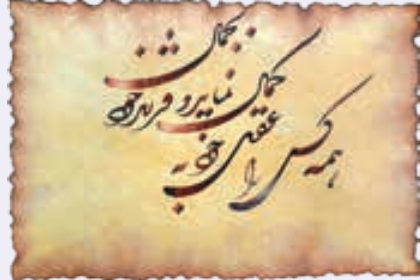 همه کس را عقل خود به کمال
نماید و فرزند خود به جمال